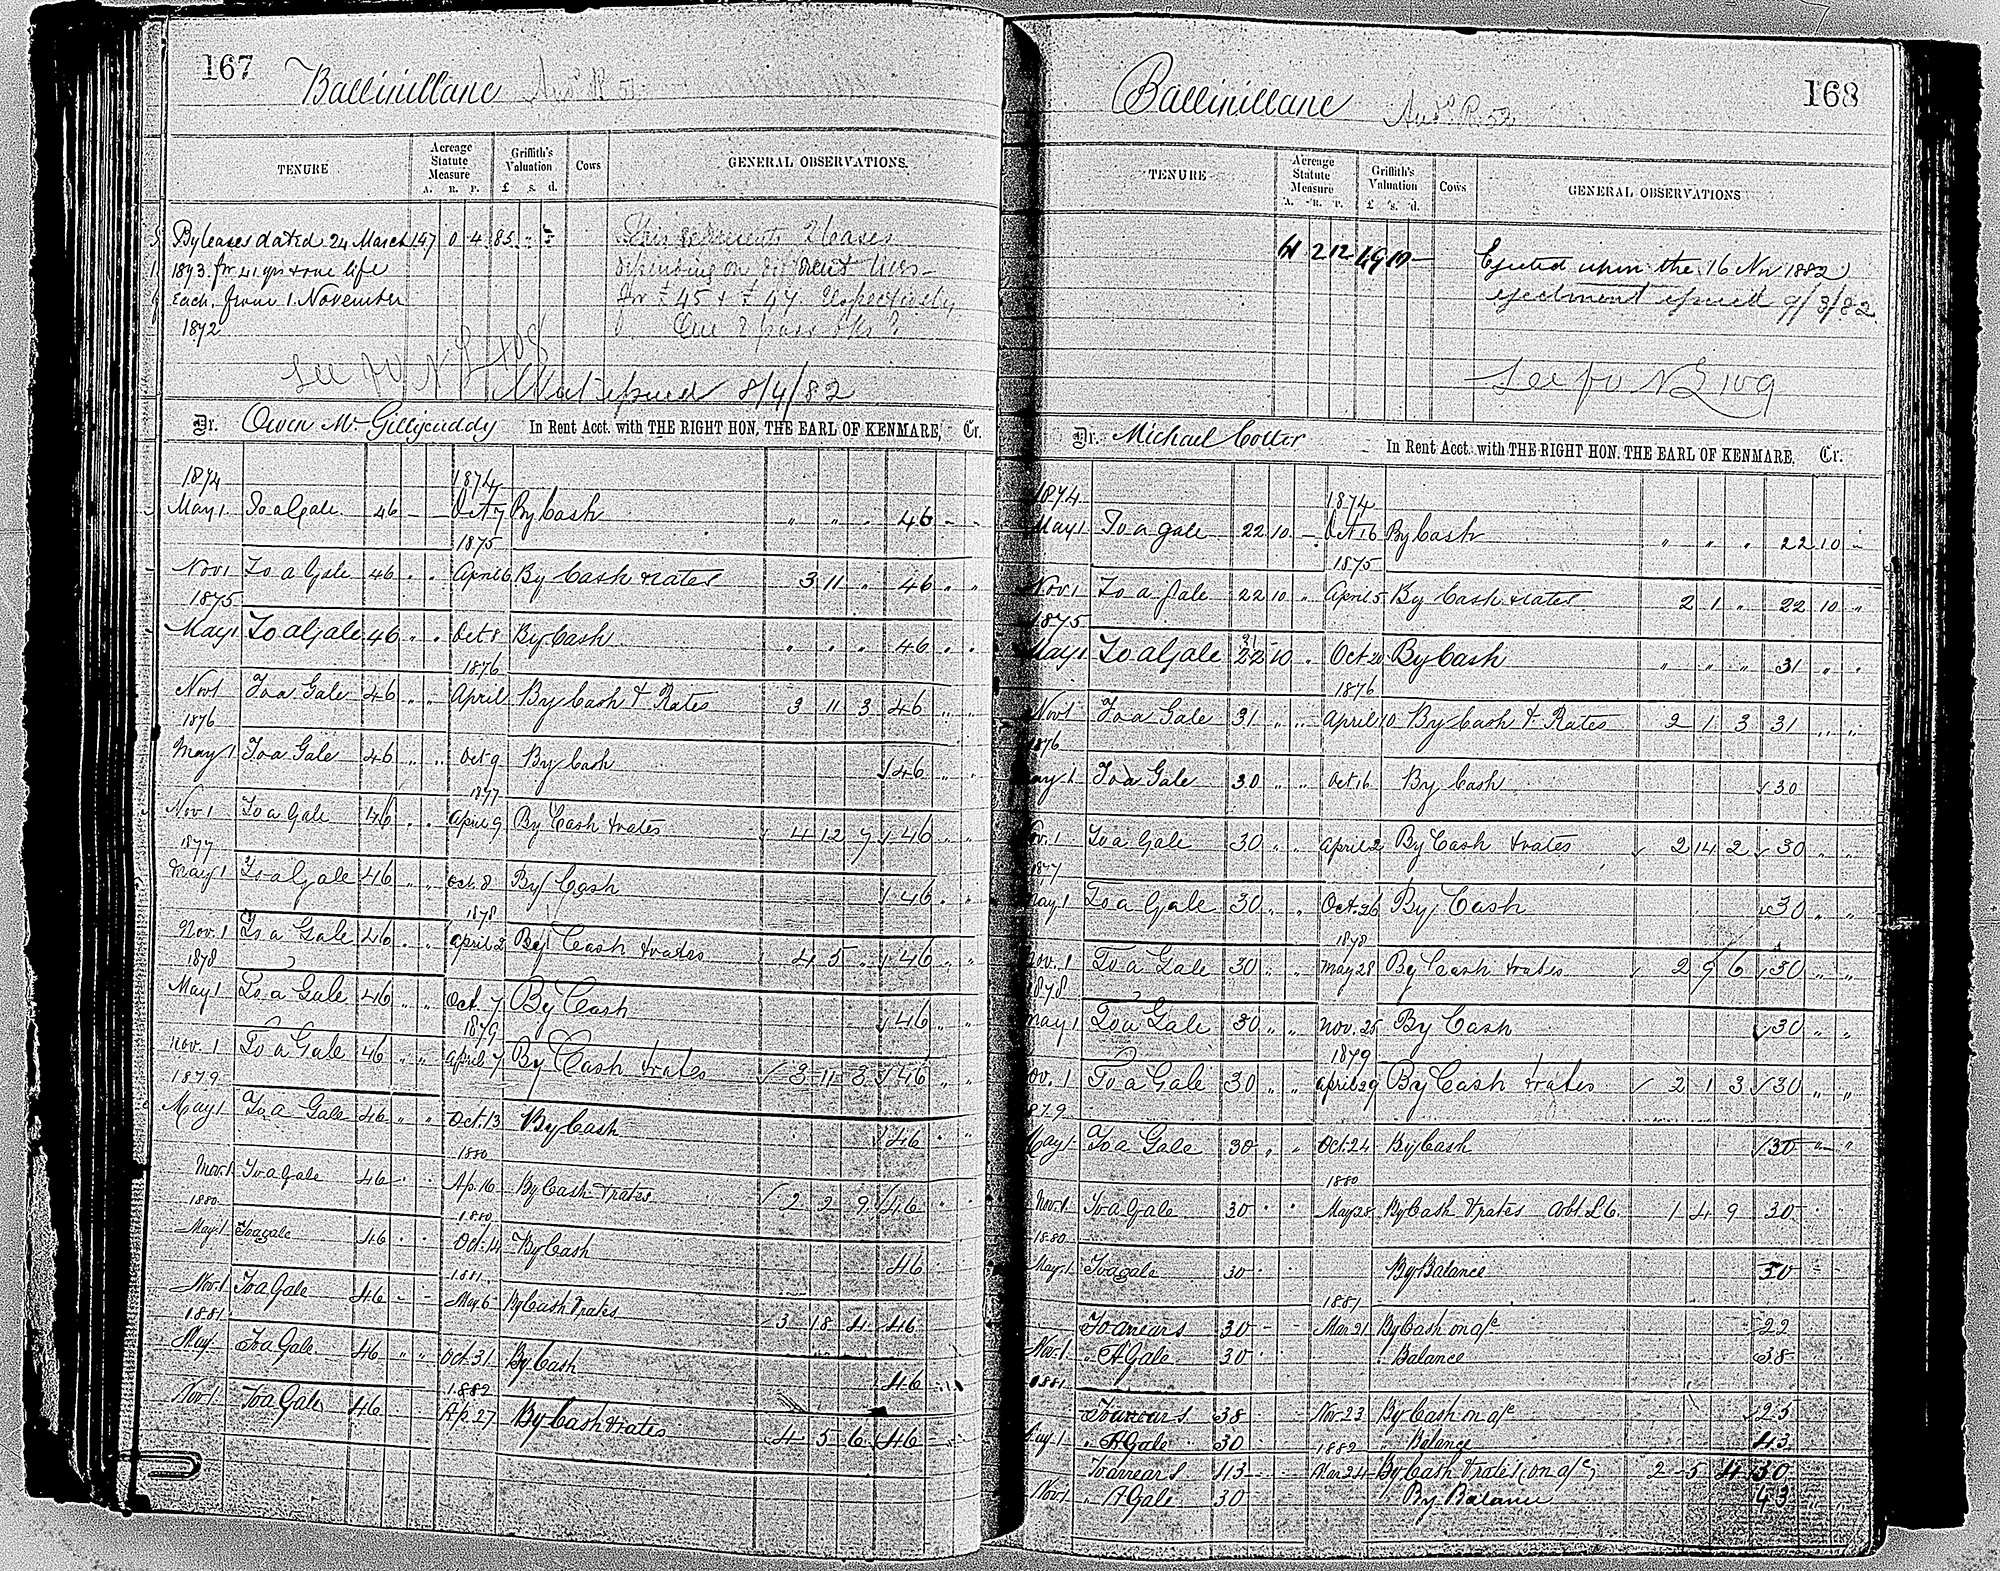 167
Ballinillane
TENURE
Acreage Statute Measure
A. R. P.
Griffith's Valuation
£ s. d.
Cows
GENERAL OBSERVATIONS.
By leases dated 24 March 147 0 4 85 " "
1873 for 41 yrs & one life
Each, from 1. November
1872
This represents 2 leases
depending on different lives
for £45 & £47. respectively
See fo N L 108
Not issued 8/4/82
Dr. Owen McGillycuddy In Rent Acct. with THE RIGHT HON. THE EARL OF KENMARE, Cr.
1874 1874
May 1. To a Gale. 46 - - Oct 7 By Cash " " " 46 - -
1875
Nov 1 To a Gale 46 " " April 6 By Cash & rates 3 11 " 46 " "
1875
May 1 To a Gale 46 " " Oct 8 By Cash " " " 46 " "
1876
Nov 1 To a Gale 46 " " April By Cash & Rates 3 11 3 46 " "
1876
May 1 To a Gale 46 " " Oct 9 By Cash 46 " "
1877
Nov 1 To a Gale 46 " " April 9 By Cash & rates 4 12 7 46 " "
1877
May 1 To a Gale 46 " " Oct. 8 By Cash 46 " "
1878
Nov. 1 To a Gale 46 " " April 2 By Cash & rates 4 5 " 46 " "
1878
May 1 To a Gale 46 " " Oct. 7 By Cash 46 " "
1879
Nov. 1 To a Gale 46 " " April 7 By Cash & rates 3 11 3 46 " "
1879
May 1 To a Gale 46 " " Oct. 13 By Cash 46 " "
1880
Nov. 1 To a Gale 46 " " Ap. 16 By Cash & rates 2 2 9 46 " "
1880 1880
May. 1 To a gale 46 " " Oct. 14 By Cash 46
1881
Nov. 1 To a Gale 46 - - May. 6 By Cash & rates 3 18 4 46
1881
May To a Gale 46 " " Oct. 31 By Cash 46
1882
Nov. 1 To a Gale 46 Ap. 27 By Cash & rates 4 5 6 46
168
Ballinillane
TENURE
Acreage Statute Measure
A. R. P.
Griffith's Valuation
£ s. d.
Cows
GENERAL OBSERVATIONS
41 2 12 49 10 -
Ejected upon the 16 Nov 1882
ejectment issued 9/3/82
See fo N L 109
Dr. Michael Cotter In Rent Acct. with THE RIGHT HON. THE EARL OF KENMARE, Cr.
1874 1874
May 1 To a gale 22 10 - Oct 16 By Cash " " " 22 10 -
1875
Nov 1 To a gale 22 10 " April 5 By Cash & rates 2 1 " 22 10 "
1875
May 1 To a Gale 31 22 10 " Oct 20 By Cash " " " 31 " "
1876
Nov 1 To a Gale 31 " " April 10 By Cash & Rates 2 1 3 31 " "
1876
May 1 To a Gale 30 " " Oct 16 By Cash 30
Nov. 1 To a Gale 30 " " April 2 By Cash & rates 2 14 2 30 " "
1877
May 1 To a Gale 30 " " Oct. 26 By Cash 30 " "
1878
Nov. 1 To a Gale 30 " " May 28 By Cash & rates 2 9 6 30 " "
1878
May 1 To a Gale 30 " " Nov. 25 By Cash 30 " "
1879
Nov. 1 To a Gale 30 " " April 29 By Cash & rates 2 1 3 30 " "
1879
May 1 To a Gale 30 " " Oct. 24 By Cash 30 " "
1880
Nov. 1 To a Gale 30 " " May 28 By Cash & rates abt. £6. 1 4 9 30
1880
May. 1 To a gale 30 By Balance 30
1881
To arrears 30 - - Mar 21 By Cash on a/c 22
Nov. 1. " A Gale 30 " Balance 38
1881
To arrears 38 Nov. 23 By Cash on a/c 25
May 1 " A Gale 30 1882 " Balance 43
To arrears 43 Mar 24 By Cash & rates (on a/c) 2 5 4 30
Nov. 1 " A Gale 30 By Balance 43